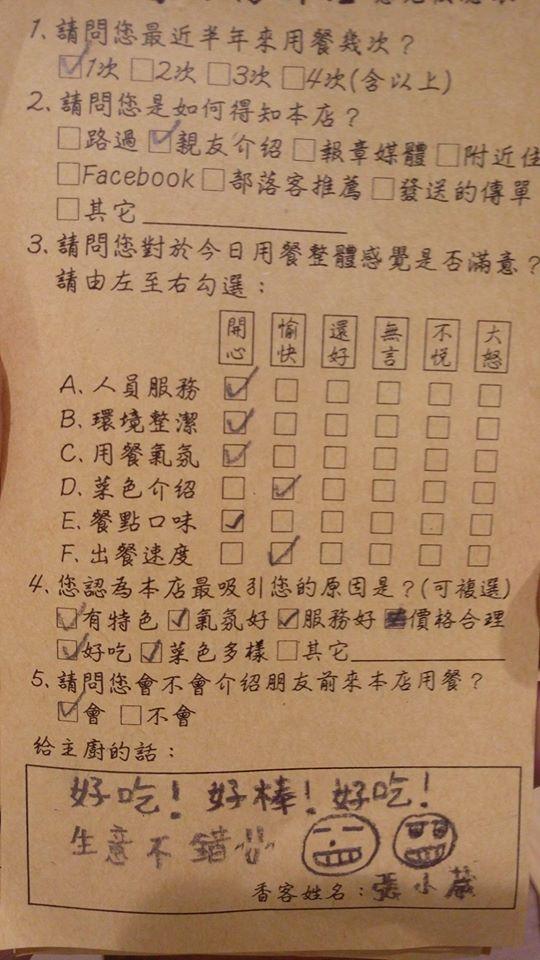 1、請問您最近半年來用餐幾次？
☑1次 □2次 □3次 □4次(含以上)
2、請問您是如何得知本店？
□路過 ☑親友介绍 □報章媒體 □附近住
□Facebook □部落客推薦 □發送的傳單
□其它
3、請問您對於今日用餐整體感覺是否滿意？
請由左至右勾選：
開心 愉快 還好 無言 不悅 大怒
A、人員服務 ☑ □ □ □ □ □
B、環境整潔 ☑ □ □ □ □ □
C、用餐氣氛 ☑ □ □ □ □ □
D、菜色介绍 □ ☑ □ □ □ □
E、餐點口味 ☑ □ □ □ □ □
F、出餐速度 □ ☑ □ □ □ □
4、您認為本店最吸引您的原因是？(可複選)
☑有特色 ☑氣氛好 ☑服務好 ■價格合理
☑好吃 ☑菜色多樣 □其它
5、請問您會不會介绍朋友前來本店用餐？
☑會 □不會
给主廚的話：
好吃！好棒！好吃！
生意不錯
香客姓名：張小葳